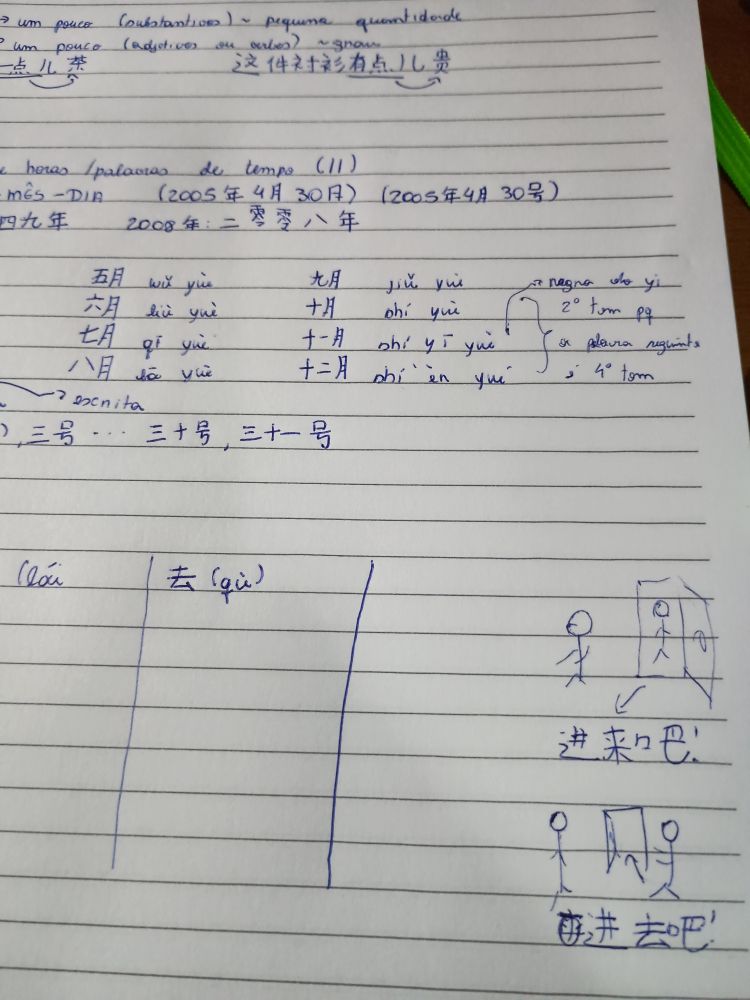 → um pouco (substantivos) ~ pequena quantidade
um pouco (adjetivos ou verbos) ~ grau
一点儿茶 这件衬衫有点儿贵
e horas/palavras de tempo (II)
-MÊS-DIA (2005年4月30日) (2005年4月30号)
四九年 2008年:二零零八年
五月 wǔ yuè 九月 jiǔ yuè → regra do yi
六月 liù yuè 十月 shí yuè 2º tom pq
七月 qī yuè 十一月 shí yī yuè a palavra seguinte
八月 bā yuè 十二月 shí èn yuè é 4º tom
→ escrita
), 三号 ... 三十号, 三十一号
(lái 去 (qù)
进来吧!
进去吧!